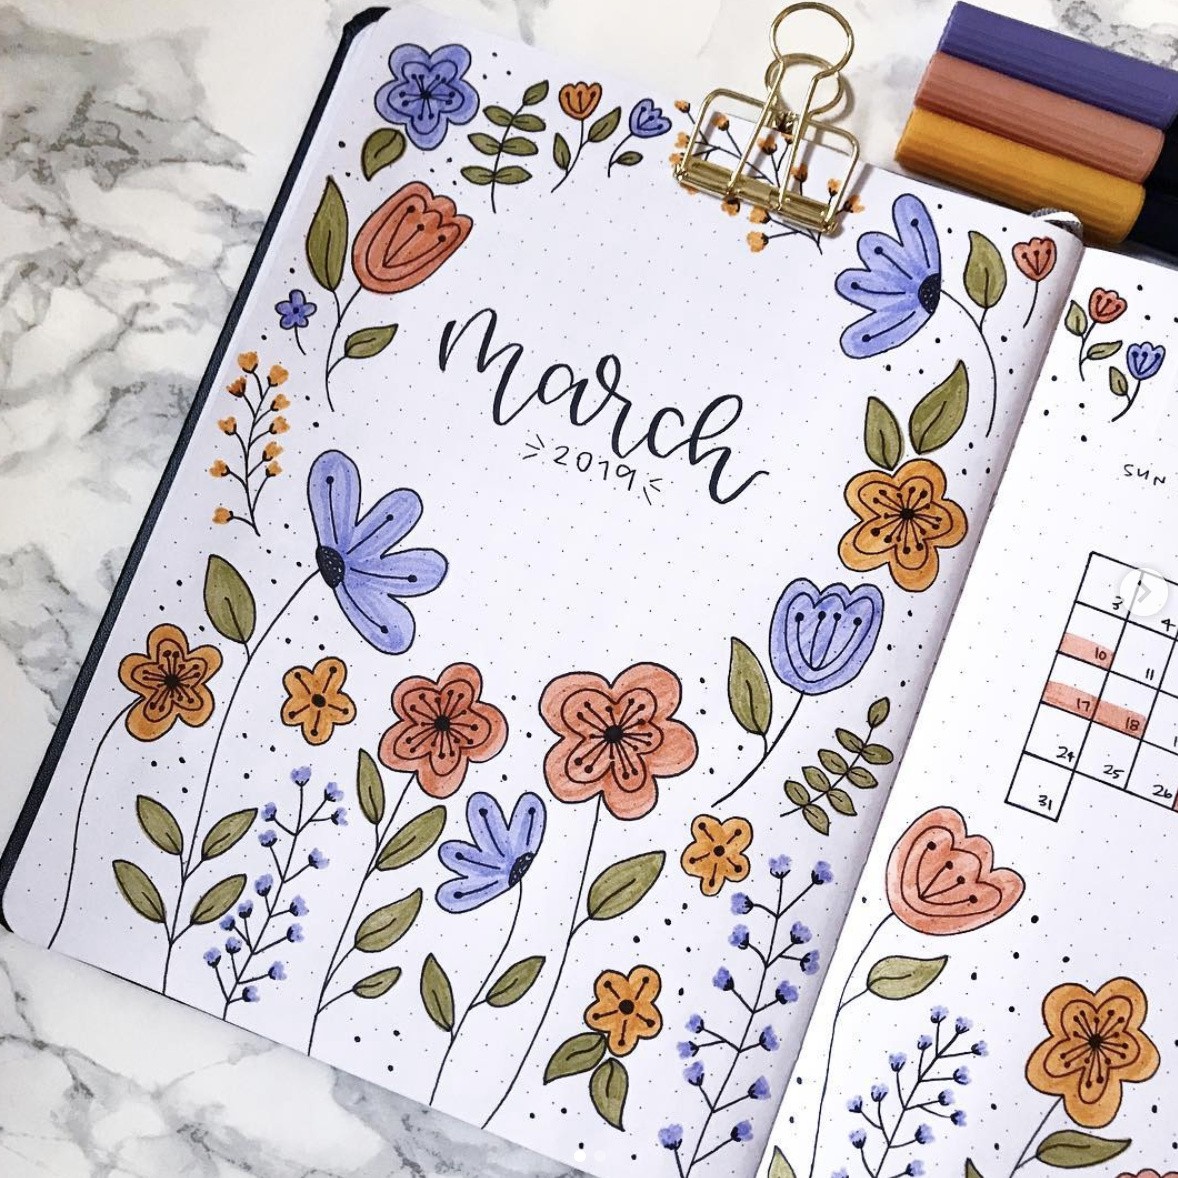 march
2019
SUN
3 4
10 11
17 18
24 25 26
31